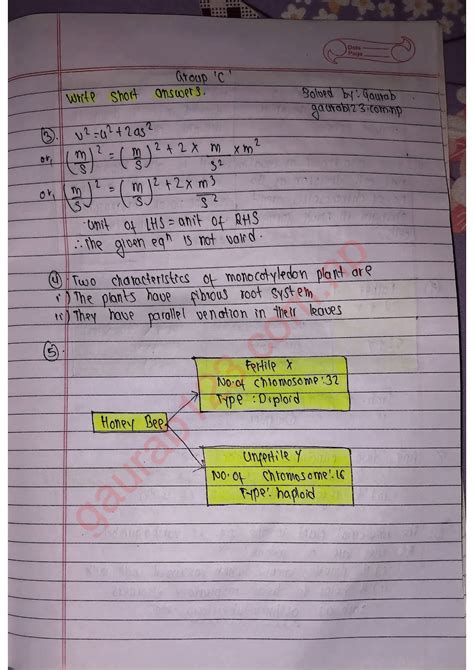 Date
Page
Group 'C'
Write short answers.
Solved by: Gaurab
gaurab123.com.np
③. v²=u²+2as²
or, (m/s)² = (m/s)² + 2 × m/s² × m²
or, (m/s)² = (m/s)² + 2 × m³/s²
unit of LHS = unit of RHS
∴ The given eqⁿ is not valid.
④. Two characteristics of monocotyledon plant are
i) The plants have fibrous root system
ii) They have parallel venation in their leaves
⑤.
Fertile X
No. of chromosome: 32
Type : Diploid
Honey Bee
Unfertile Y
No. of chromosome: 16
Type: haploid
gaurab123.com.np